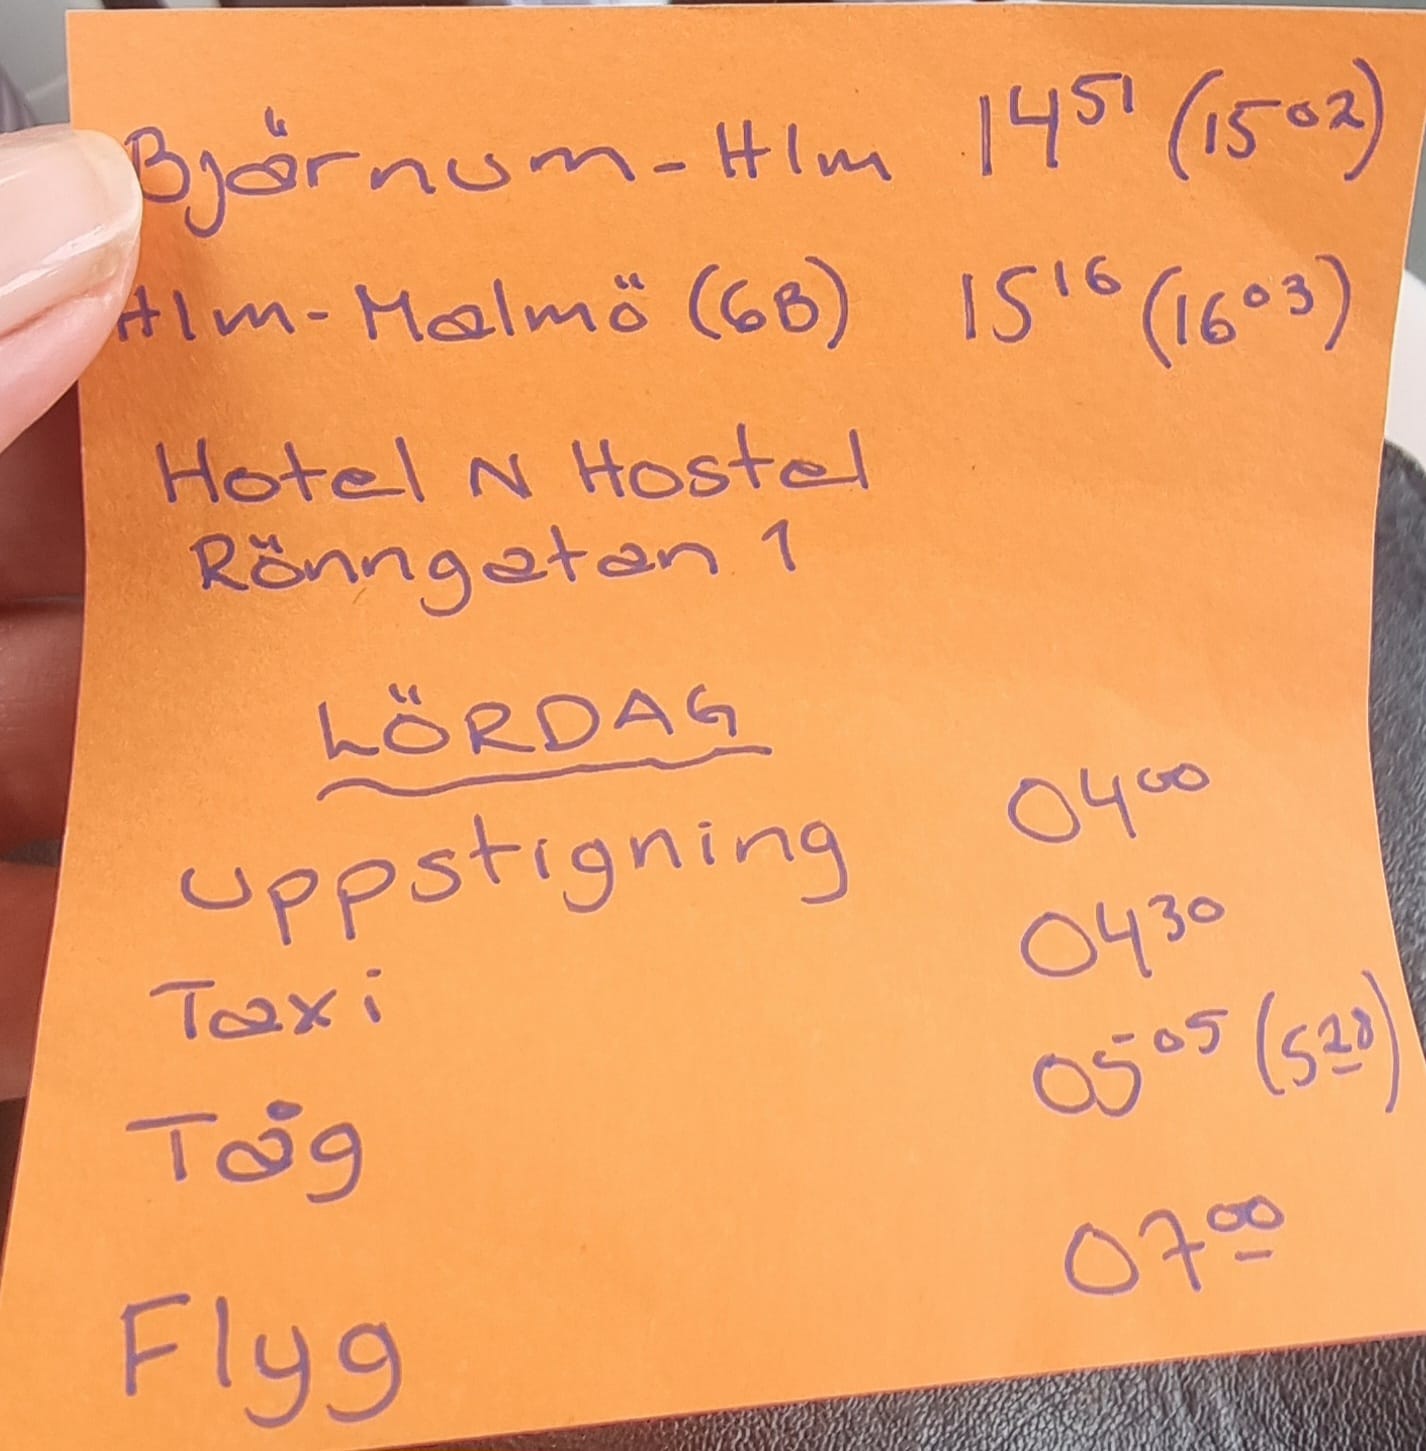 Björnum - Hlm 14⁵¹ (15⁰²)
Hlm - Malmö (6B) 15¹⁶ (16⁰³)
Hotel N Hostel
Rönngatan 1
LÖRDAG
Uppstigning 04⁰⁰
Taxi 04³⁰
Tåg 05⁰⁵ (5²⁸)
Flyg 07⁰⁰